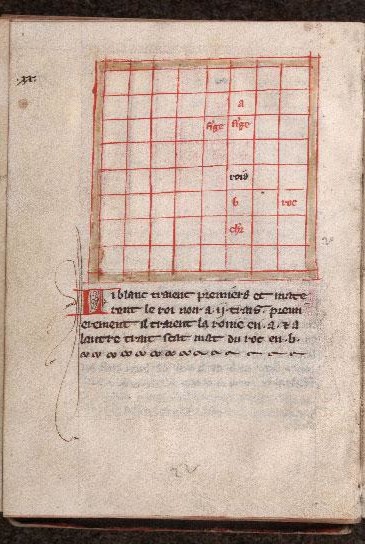 .xx.
a
fige fige
rois
b roc
chr
Li blanc traient premiers et mate
ront le roi noir a .ij. trais. premi
erement il traient la roine en .a. & a
lautre trait scac mat du roc en .b.
22